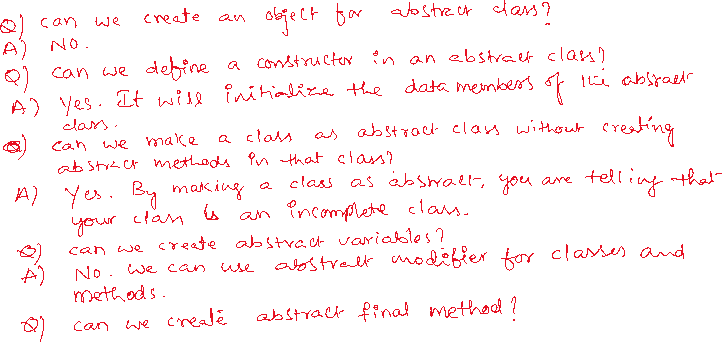 Q) can we create an object for abstract class?
A) NO.
Q) can we define a constructor in an abstract class?
A) Yes. It will initialize the data members of the abstract
class.
Q) can we make a class as abstract class without creating
abstract methods in that class?
A) Yes. By making a class as abstract, you are telling that
your class is an incomplete class.
Q) can we create abstract variables?
A) No. we can use abstract modifier for classes and
methods.
Q) can we create abstract final method?